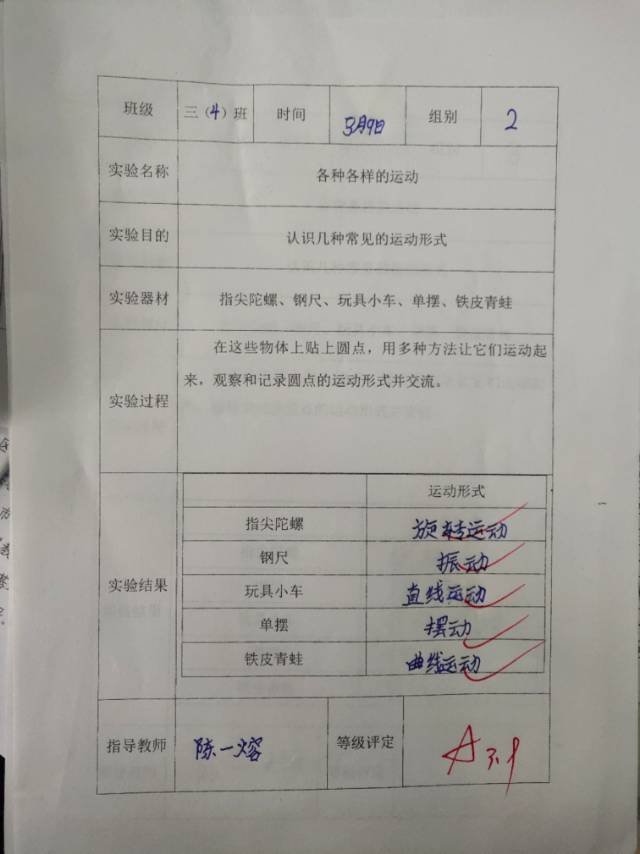 班级 三（4）班 时间 3月9日 组别 2
实验名称 各种各样的运动
实验目的 认识几种常见的运动形式
实验器材 指尖陀螺、钢尺、玩具小车、单摆、铁皮青蛙
实验过程 在这些物体上贴上圆点，用多种方法让它们运动起
来，观察和记录圆点的运动形式并交流。
实验结果
运动形式
指尖陀螺 旋转运动
钢尺 振动
玩具小车 直线运动
单摆 摆动
铁皮青蛙 曲线运动
指导教师 陈一熔 等级评定 A 3.9